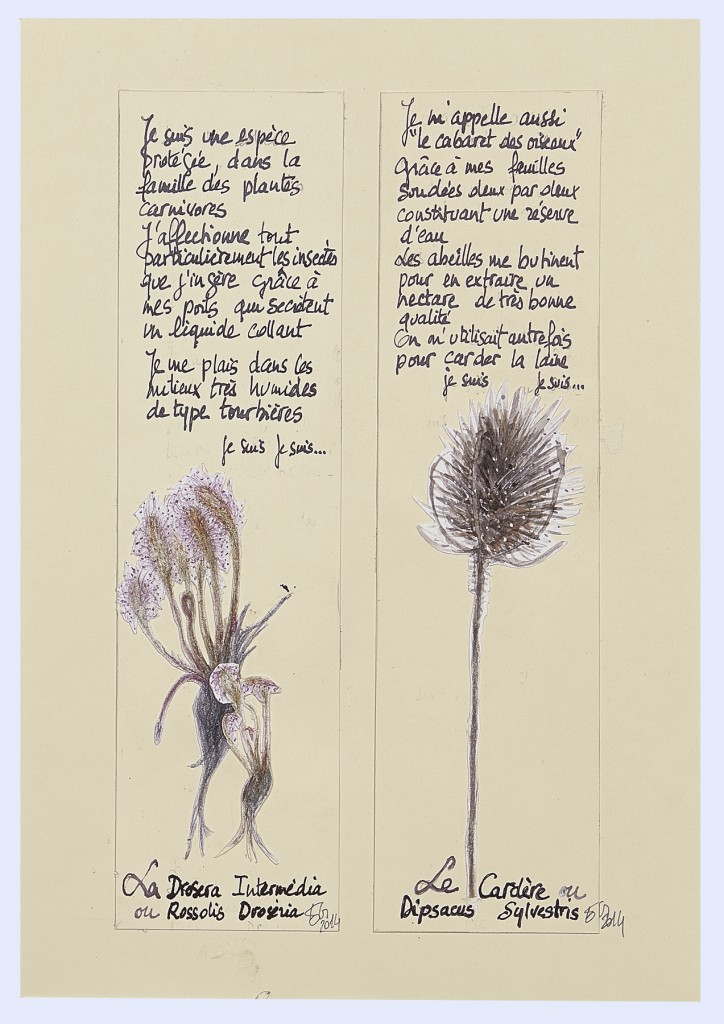 Je suis une espèce
protégée, dans la
famille des plantes
carnivores
J'affectionne tout
particulièrement les insectes
que j'ingère grâce à
mes poils qui secrètent
un liquide collant
Je me plais dans les
milieux très humides
de type tourbières
je suis je suis...
La Drosera Intermédia
ou Rossolis Droséria
2014
Je m'appelle aussi
"le cabaret des oiseaux"
Grâce à mes feuilles
soudées deux par deux
constituant une réserve
d'eau
Les abeilles me butinent
pour en extraire un
nectare de très bonne
qualité
On m'utilisait autrefois
pour carder la laine
je suis je suis...
Le Cardère ou
Dipsacus Sylvestris
2014